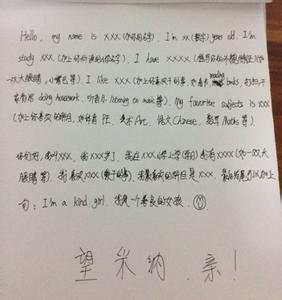 Hello, my name is XXX (加你的名字). I'm xx (数字) years old. I'm
study xxx (加上你所读的小学名字). I have xxxxx (想写你的外貌特征)如
一双大眼睛, 小嘴巴等) I like xxx (加上你喜欢干的事, 如看书 reading books, 打扫干
家务活 doing housework, 听音乐 listening to music等). My favorite subjects is xxx
(加上你喜欢的科目, 如体育 P.E, 美术 Art, 语文 Chinese, 数学 Maths 等).
你们好, 我叫xxx, 我xxx岁了, 我在xxx(学上学(学习) 我有xxxx(如一双大
眼睛等). 我喜欢xxx(要干的事), 我最喜欢的科目是xxx, 最后你还可以加上
句: I'm a kind girl. 我是一个善良的女孩.
望采纳, 亲!